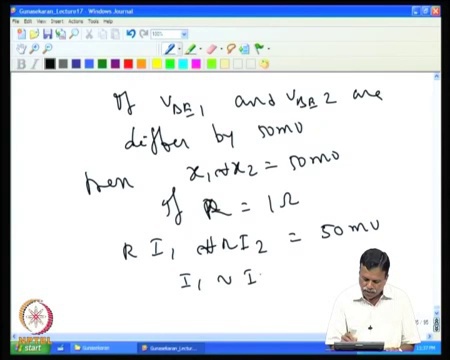 Gunasekaran_Lecture17 - Windows Journal
File Edit View Insert Actions Tools Help
If VBE1 and VBE2 are
differ by 50mV
then x1 ~ x2 = 50mV
If R = 1Ω
R I1 ~ R I2 = 50mV
I1 ~ I
start
Gunasekaran
Gunasekaran_Lectur...